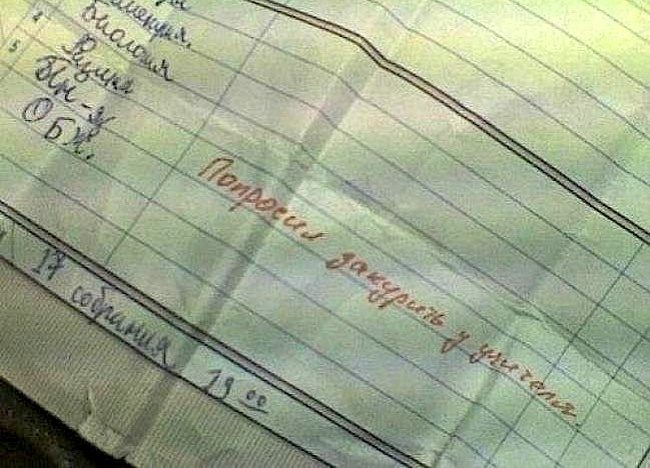 Биология
Физика
Ин-я
ОБЖ.
Попросил закурить у учителя.
17 собрания 19 00